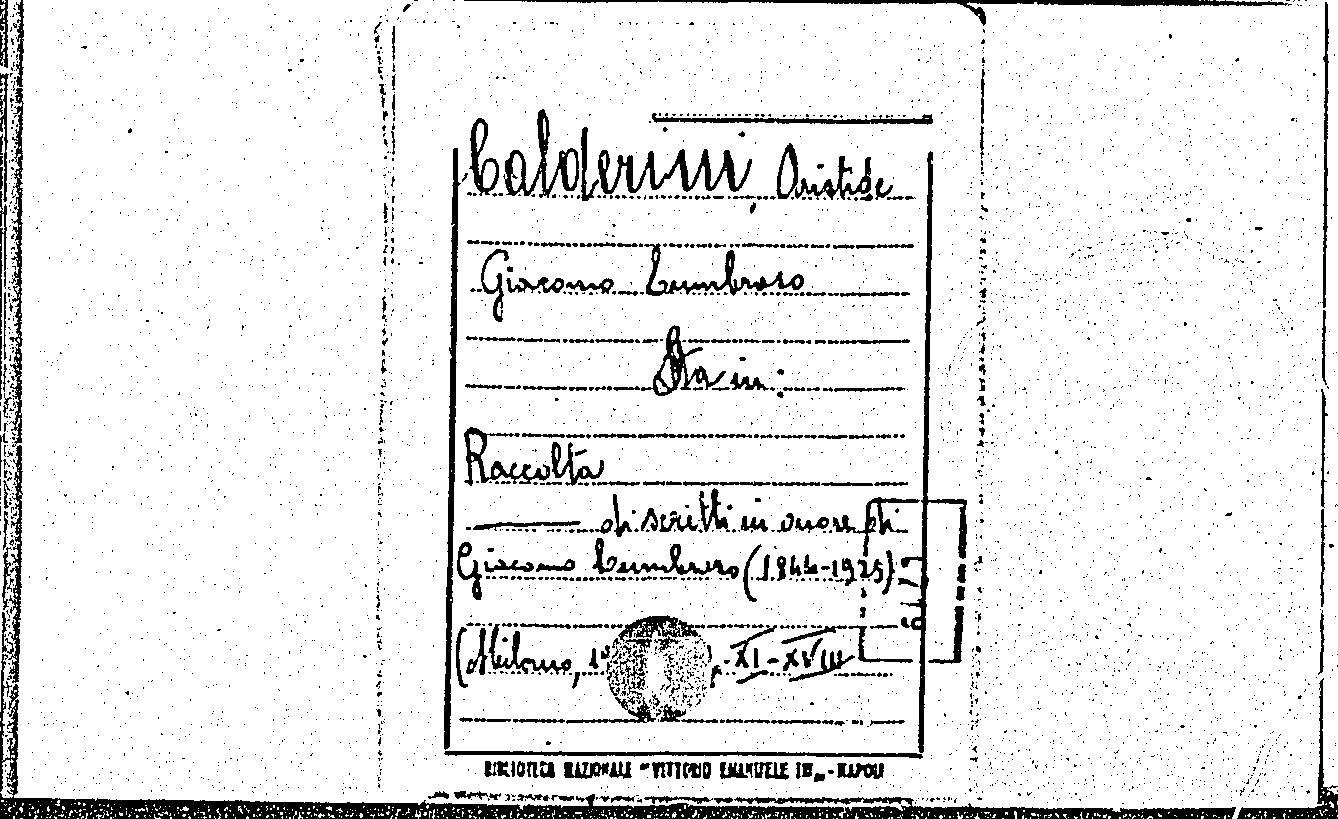 Calderini, Aristide
Giacomo Lumbroso
Sta in:
Raccolta
di scritti in onore di
Giacomo Lumbroso (1844-1925)
(Milano, XI-XVIII
BIBLIOTECA NAZIONALE "VITTORIO EMANUELE III" - NAPOLI